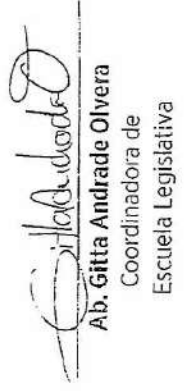 Ab. Gitta Andrade Olvera
Coordinadora de
Escuela Legislativa